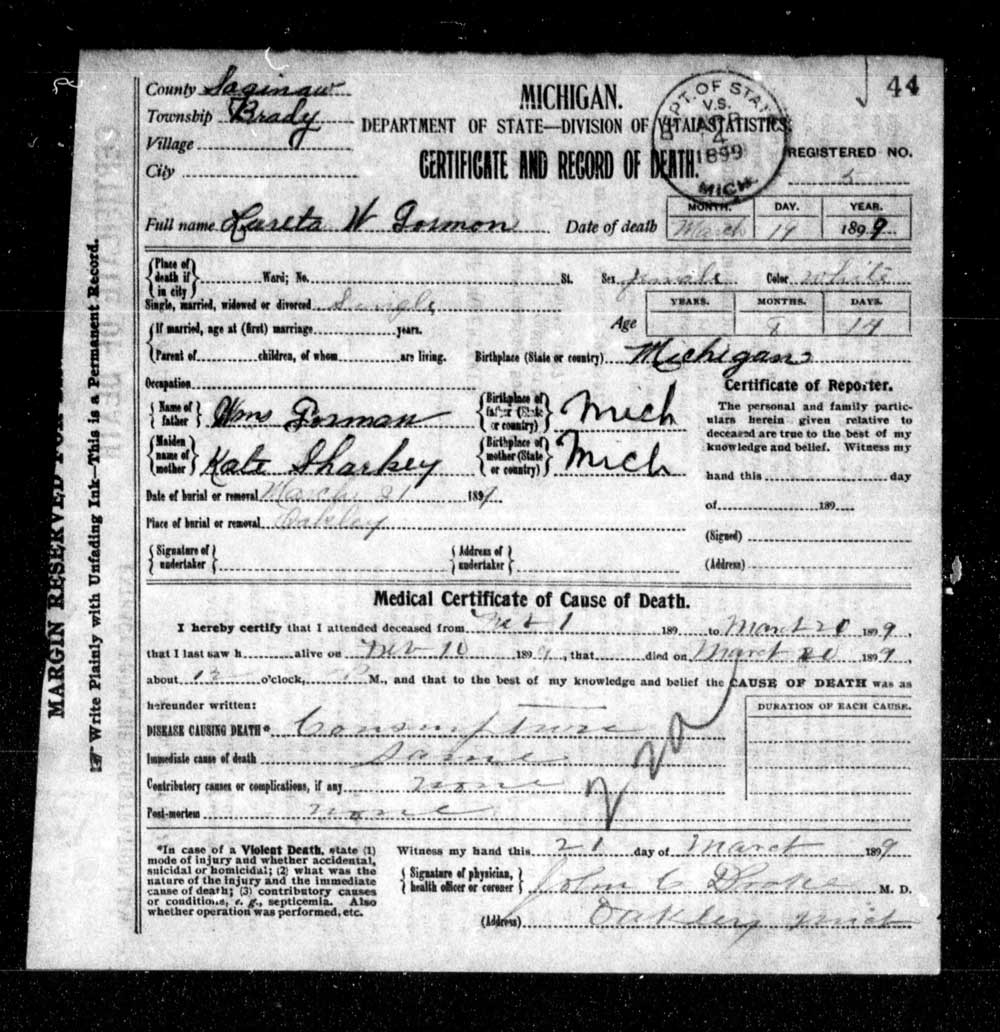 44
County Saginaw
Township Brady
Village
City
MICHIGAN.
DEPARTMENT OF STATE—DIVISION OF VITAL STATISTICS.
CERTIFICATE AND RECORD OF DEATH.
DEPT. OF STATE
V.S.
APR
4
1899
MICH.
REGISTERED NO.
5
Full name Lareta W Gormon Date of death
MONTH. DAY. YEAR.
March 19 1899
Place of death if in city Ward; No. St. Sex female Color white
Single, married, widowed or divorced Single
YEARS. MONTHS. DAYS.
Age 8 14
If married, age at (first) marriage years.
Parent of children, of whom are living. Birthplace (State or country) Michigan
Occupation
Name of father Wms Gorman Birthplace of father (State or country) Mich
Maiden name of mother Kate Sharkey Birthplace of mother (State or country) Mich
Date of burial or removal March 21 189
Place of burial or removal Oakley
Signature of undertaker Address of undertaker
Certificate of Reporter.
The personal and family partic-
ulars herein given relative to
deceased are true to the best of my
knowledge and belief. Witness my
hand this day
of 189
(Signed)
(Address)
Medical Certificate of Cause of Death.
I hereby certify that I attended deceased from 1 189 to March 20 1899,
that I last saw h alive on 10 1899, that died on March 20 1899,
about 12 o'clock, M., and that to the best of my knowledge and belief the CAUSE OF DEATH was as
hereunder written:
DURATION OF EACH CAUSE.
DISEASE CAUSING DEATH*
Immediate cause of death Same
Contributory causes or complications, if any none
Post-mortem none
*In case of a Violent Death, state (1)
mode of injury and whether accidental,
suicidal or homicidal; (2) what was the
nature of the injury and the immediate
cause of death; (3) contributory causes
or conditions, e. g., septicemia. Also
whether operation was performed, etc.
Witness my hand this 21 day of March 1899
Signature of physician, health officer or coroner John C Droke M. D.
(Address) Oakley Mich
MARGIN RESERVED FOR
Write Plainly with Unfading Ink—This is a Permanent Record.